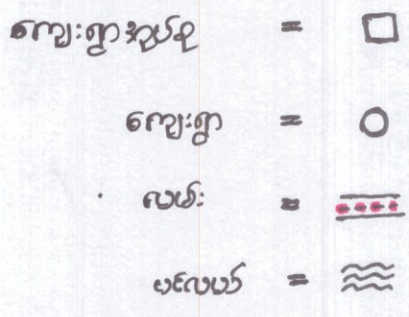 ကျေးရွာအုပ်စု =
ကျေးရွာ =
လမ်း =
ပင်လယ် =